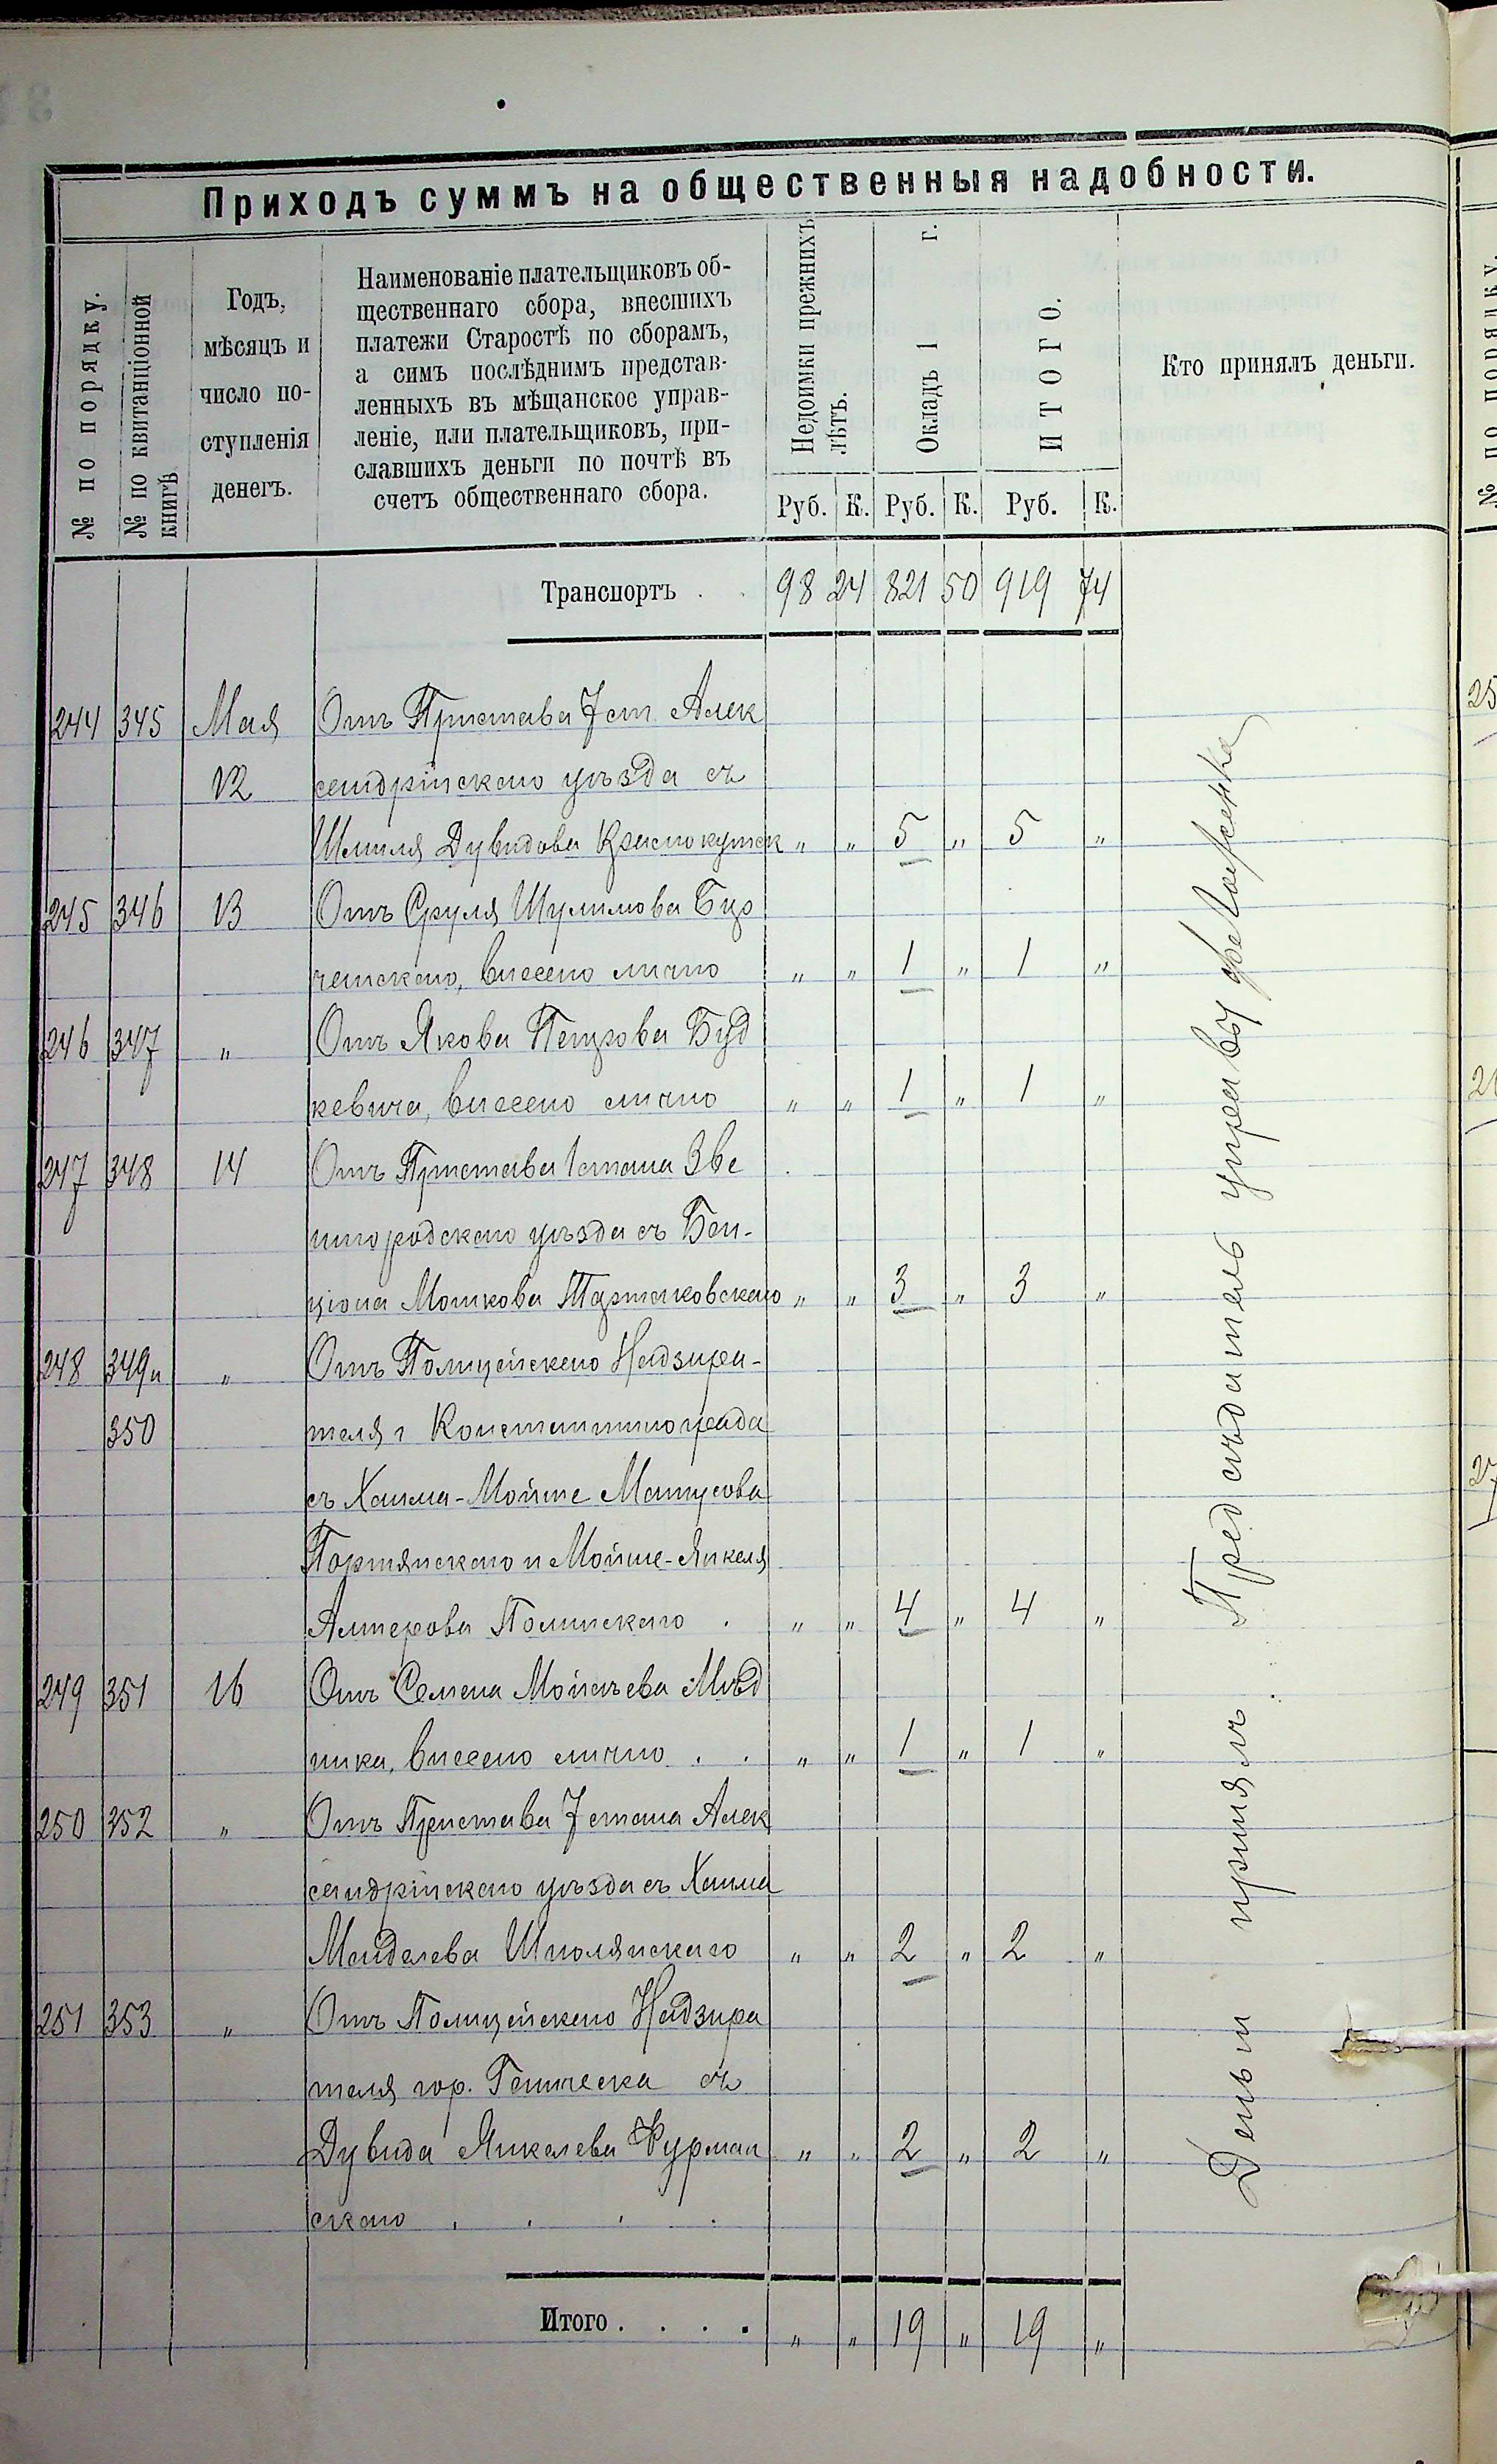 Приходъ суммъ на общественныя надобности.
№ по порядку.
№ по квитанціонной книгѣ
Годъ, мѣсяцъ и число поступленія денегъ.
Наименованіе плательщиковъ об-
щественнаго сбора, внесшихъ
платежи Старостѣ по сборамъ,
а симъ послѣднимъ представ-
ленныхъ въ мѣщанское управ-
леніе, или плательщиковъ, при-
славшихъ деньги по почтѣ въ
счетъ общественнаго сбора.
Недоимки прежнихъ лѣтъ.
Окладъ 1 г.
ИТОГО.
Кто принялъ деньги.
Руб. К. Руб. К. Руб. К.
Транспортъ . . 98 24 821 50 919 74
244 345 Мая Отъ Пристава 7 ст. Алек
12 сандрійскаго уѣзда съ
Шмиля Дувидова Краснокутск " " 5 " 5 "
245 346 13 Отъ Сруля Шулимова
внесено лично " " 1 " 1 "
246 347 " Отъ Якова Петрова Буд
кевича, внесено лично " " 1 " 1 "
247 348 14 Отъ Пристава 1 стана Зве
нигородскаго уѣзда съ Бен-
ціона Мошкова Тартаковскаго " " 3 " 3 "
248 349 и " Отъ Полицейскаго Надзира-
350 теля г Константинограда
съ Хаима-Мойше Матусова
Портянскаго и Мойше-Янкеля
Алтерова Полинскаго . " " 4 " 4 "
249 351 16 Отъ Семена Мойсѣева Мѣд
ника, внесено лично . . " " 1 " 1 "
250 352 " Отъ Пристава 7 стана Алек
сандрійскаго уѣзда съ Хаима
Менделева Шполянскаго " " 2 " 2 "
251 353 " Отъ Полицейскаго Надзира
теля гор. Геническа съ
Дувида Янкелева Фурман " " 2 " 2 "
скаго . . . .
Итого . . . . " " 19 " 19 "
Деньги принялъ Предсѣдатель управы